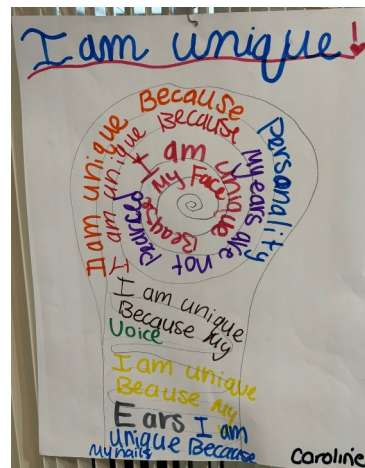 I am unique!
I am unique Because Personality
I am unique Because my ears are not pearced
I am unique Because My Face
I am unique
Because My
Voice
I am unique
Beause My
Ears I am
unique Because
My nails
Caroline